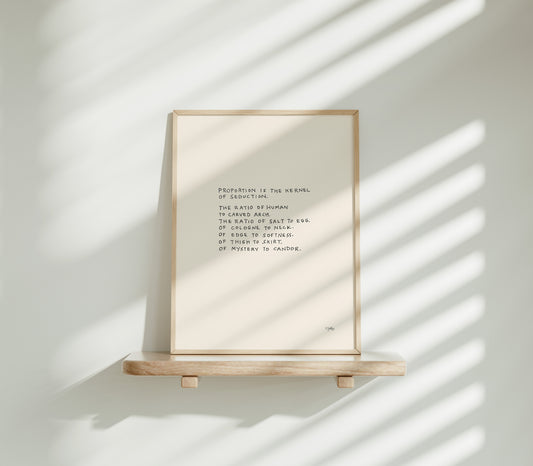 PROPORTION IS THE KERNEL
OF SEDUCTION.
THE RATIO OF HUMAN
TO CARVED ARCH.
THE RATIO OF SALT TO EGG.
OF COLOGNE TO NECK.
OF EDGE TO SOFTNESS.
OF THIGH TO SKIRT.
OF MYSTERY TO CANDOR.